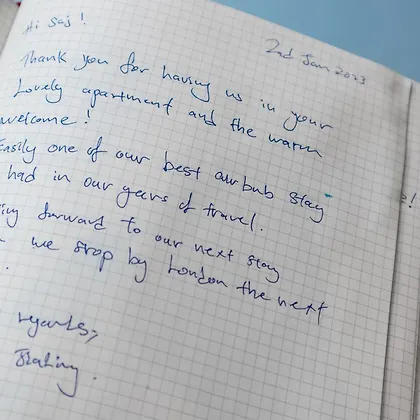 Hi Saj!
2nd Jan 2023
Thank you for having us in your
Lovely apartment and the warm
welcome!
Easily one of our best airbnb stay
had in our years of travel.
ing forward to our next stay
we stop by London the next
regards,
!